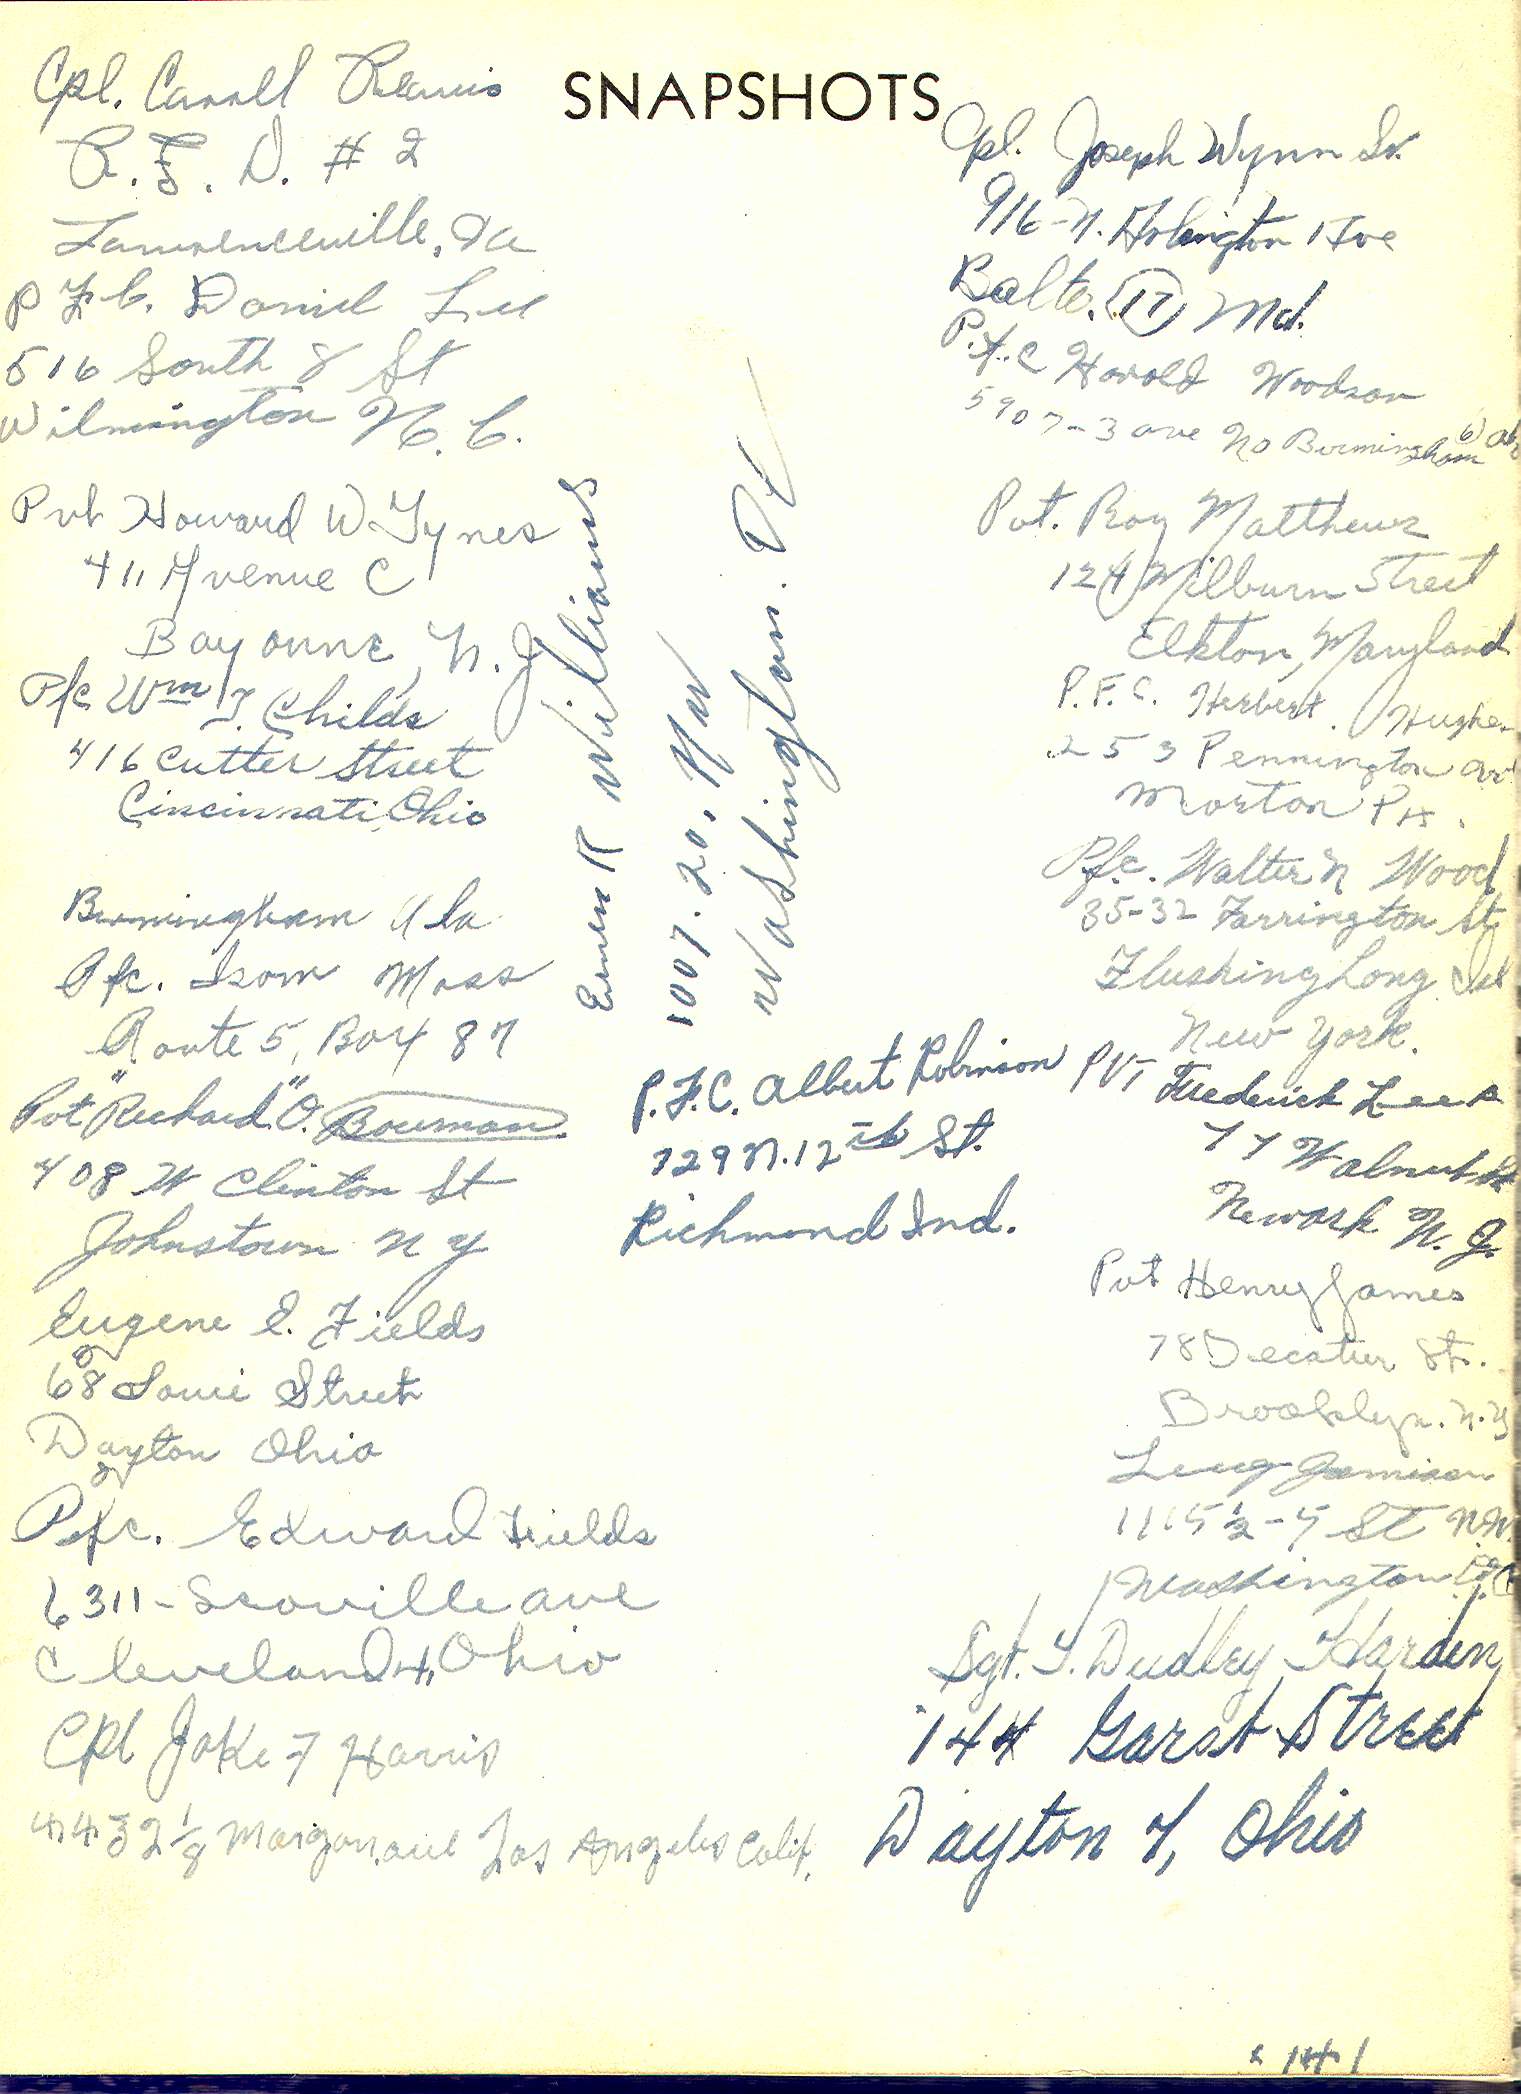 SNAPSHOTS
Cpl. Carroll Reavis
R.F.D. # 2
Lawrenceville, Va
PFC. Daniel Lee
516 South 8 St
Wilmington N.C.
Pvt Howard W Tynes
411 Avenue C
Bayonne, N.J
Pfc Wm T. Childs
416 Cutter Street
Cincinnati, Ohio
Birmingham Ala
Pfc. Isom Moss
Route 5, Box 87
Pvt "Richard" O. Bowman.
408 W Clinton St
Johnstown N Y
Eugene E. Fields
68 Street
Dayton Ohio
Pfc. Edward Fields
6311 - Scoville ave
Cleveland 4, Ohio
Cpl Jake F Harris
4432 1/8 ave Los Angeles Calif.
R Williams
1007. 20, NW
Washington. DC
P.F.C. Albert Robinson
729 N. 12th St.
Richmond Ind.
Cpl. Joseph Wynn Sr.
916 - N. Arlington Ave
Balto. (17) Md.
P.f.c Harold Woodson
5907 - 3 ave No Birmingham (6) ala
Pvt. Roy Matthews
124 Milburn Street
Elkton, Maryland
P.F.C. Herbert. Hughes
253 Pennington av
Morton Pa.
Pfc. Walter N Wood
35-32 Farrington St
Flushing Long Isl
New York.
PVT Frederick Lees
77 Walnut St
Newark N.J.
Pvt Henry James
78 Decatur St.
Brooklyn. N.Y
Jamison
1115 1/2 - 5 St N.W.
Washington D.C
Sgt. T. Dudley Harden
144 Garst Street
Dayton 7, Ohio
141